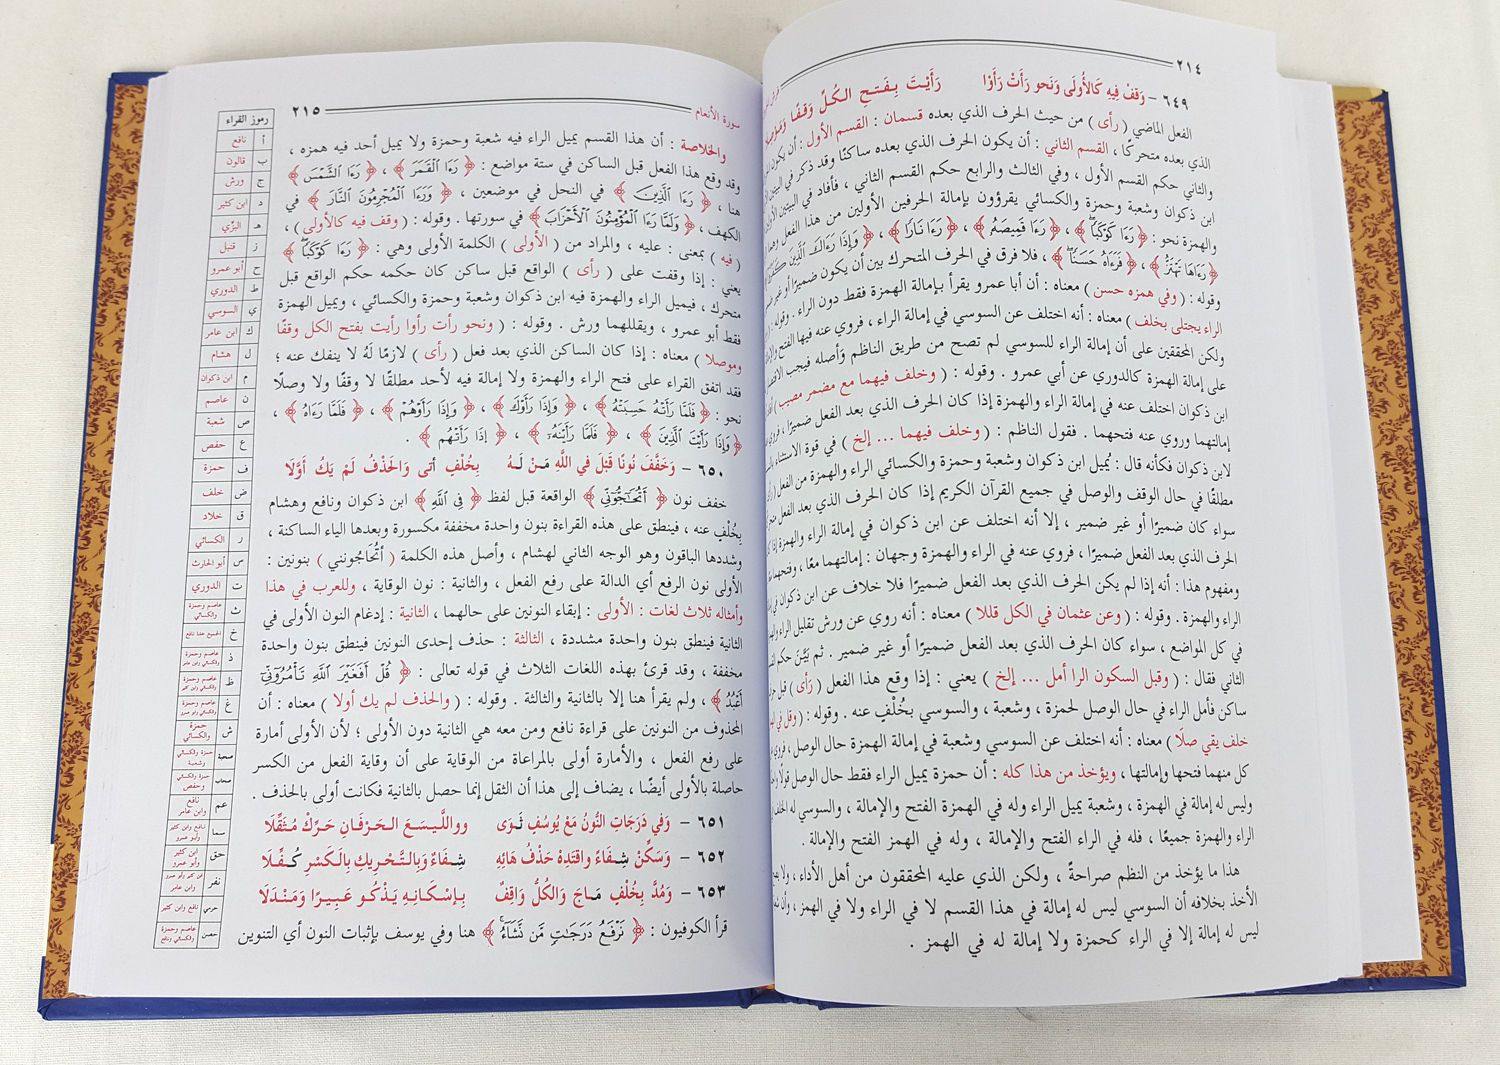 ٢١٤
٦٤٩ - وَقِفْ فِيهِ كَالأُولَى وَنَحْو رَأَتْ رَأَوْا رَأَيْتَ بِفَتْحِ الكُلِّ وَقْفًا
الفعل الماضي ( رأى ) من حيث الحرف الذي بعده قسمان : القسم الأول : أن يكون
الذي بعده متحركًا ، القسم الثاني : أن يكون الحرف الذي بعده ساكنًا وقد ذكر في البيتين
والثاني حكم القسم الأول ، وفي الثالث والرابع حكم القسم الثاني ، فأفاد في البيتين
ابن ذكوان وشعبة وحمزة والكسائي يقرؤون بإمالة الحرفين الأولين من هذا الفعل وهما
والهمزة نحو : ﴿ رَءَا كَوْكَبًا ﴾ ، ﴿ رَءَا قَمِيصَهُ ﴾ ، ﴿ رَءَا نَارًا ﴾ ، ﴿ وَإِذَا رَءَاكَ الَّذِينَ
﴿ رَءَاهَا تَهْتَزُّ ﴾ ، ﴿ فَرَءَاهُ حَسَنًا ﴾ ، فلا فرق في الحرف المتحرك بين أن يكون ضميرًا أو غير
وقوله : ( وفي همزه حسن ) معناه : أن أبا عمرو يقرأ بإمالة الهمزة فقط دون الراء . وقوله :
الراء يجتلى بخلف ) معناه : أنه اختلف عن السوسي في إمالة الراء ، فروي عنه فيها الفتح
ولكن المحققين على أن إمالة الراء للسوسي لم تصح من طريق الناظم وأصله فيجب
على إمالة الهمزة كالدوري عن أبي عمرو . وقوله : ( وخلف فيهما مع مضمر مصيب )
ابن ذكوان اختلف عنه في إمالة الراء والهمزة إذا كان الحرف الذي بعد الفعل ضميرًا ،
إمالتهما وروي عنه فتحهما . فقول الناظم : ( وخلف فيهما ... إلخ ) في قوة الاستثناء
لابن ذكوان فكأنه قال : يُميل ابن ذكوان وشعبة وحمزة والكسائي الراء والهمزة من الفعل
مطلقًا في حال الوقف والوصل في جميع القرآن الكريم إذا كان الحرف الذي بعد الفعل
سواء كان ضميرًا أو غير ضمير ، إلا أنه اختلف عن ابن ذكوان في إمالة الراء والهمزة إذا
الحرف الذي بعد الفعل ضميرًا ، فروي عنه في الراء والهمزة وجهان : إمالتهما معًا ، وفتحهما
ومفهوم هذا : أنه إذا لم يكن الحرف الذي بعد الفعل ضميرًا فلا خلاف عن ابن ذكوان في
الراء والهمزة . وقوله : ( وعن عثمان في الكل قللا ) معناه : أنه روي عن ورش تقليل الراء
في كل المواضع ، سواء كان الحرف الذي بعد الفعل ضميرًا أو غير ضمير . ثم بَيَّنَ حكم
الثاني فقال : ( وقبل السكون الرا أمل ... إلخ ) يعني : إذا وقع هذا الفعل ( رأى ) قبل
ساكن فأمل الراء في حال الوصل لحمزة ، وشعبة ، والسوسي بخُلْفٍ عنه . وقوله : ( وقل في
خلف يقي صلا ) معناه : أنه اختلف عن السوسي وشعبة في إمالة الهمزة حال الوصل ،
كل منهما فتحها وإمالتها ، ويؤخذ من هذا كله : أن حمزة يميل الراء فقط حال الوصل
وليس له إمالة في الهمزة ، وشعبة يميل الراء وله في الهمزة الفتح والإمالة ، والسوسي له
الراء والهمزة جميعًا ، فله في الراء الفتح والإمالة ، وله في الهمز الفتح والإمالة .
هذا ما يؤخذ من النظم صراحةً ، ولكن الذي عليه المحققون من أهل الأداء ، ولا
الأخذ بخلافه أن السوسي ليس له إمالة في هذا القسم لا في الراء ولا في الهمز ، وأن
ليس له إمالة إلا في الراء كحمزة ولا إمالة له في الهمز .
سورة الأنعام ٢١٥
والخلاصة : أن هذا القسم يميل الراء فيه شعبة وحمزة ولا يميل أحد فيه همزه ،
وقد وقع هذا الفعل قبل الساكن في ستة مواضع : ﴿ رَءَا الْقَمَرَ ﴾ ، ﴿ رَءَا الشَّمْسَ ﴾
هنا ، ﴿ رَءَا الَّذِينَ ﴾ في النحل في موضعين ، ﴿ وَرَءَا الْمُجْرِمُونَ النَّارَ ﴾ في
الكهف ، ﴿ وَلَمَّا رَءَا الْمُؤْمِنُونَ الْأَحْزَابَ ﴾ في سورتها . وقوله : ( وقف فيه كالأولى ) ،
( فيه ) بمعنى : عليه ، والمراد من ( الأولى ) الكلمة الأولى وهي : ﴿ رَءَا كَوْكَبًا ﴾
يعني : إذا وقفت على ( رأى ) الواقع قبل ساكن كان حكمه حكم الواقع قبل
متحرك ، فيميل الراء والهمزة فيه ابن ذكوان وشعبة وحمزة والكسائي ، ويميل الهمزة
فقط أبو عمرو ، ويقللهما ورش . وقوله : ( ونحو رأت رأوا رأيت بفتح الكل وقفًا
وموصلا ) معناه : إذا كان الساكن الذي بعد فعل ( رأى ) لازمًا لَهُ لا ينفك عنه ؛
فقد اتفق القراء على فتح الراء والهمزة ولا إمالة فيه لأحد مطلقًا لا وقفًا ولا وصلًا
نحو : ﴿ فَلَمَّا رَأَتْهُ حَسِبَتْهُ ﴾ ، ﴿ وَإِذَا رَأَوْكَ ﴾ ، ﴿ وَإِذَا رَأَوْهُمْ ﴾ ، ﴿ فَلَمَّا رَءَاهُ ﴾ ،
﴿ وَإِذَا رَأَيْتَ الَّذِينَ ﴾ ، ﴿ فَلَمَّا رَأَيْنَهُ ﴾ ، ﴿ إِذَا رَأَتْهُم ﴾ .
٦٥٠ - وَخَفَّفَ نُونًا قَبْلَ في اللَّهِ مَنْ لَهُ بِخُلْفٍ أتى وَالحَذْفُ لَمْ يَكُ أَوَّلَا
خفف نون ﴿ أَتُحَاجُّونِّي ﴾ الواقعة قبل لفظ ﴿ فِي اللَّهِ ﴾ ابن ذكوان ونافع وهشام
بخُلْفٍ عنه ، فينطق على هذه القراءة بنون واحدة مخففة مكسورة وبعدها الياء الساكنة ،
وشددها الباقون وهو الوجه الثاني لهشام ، وأصل هذه الكلمة ( أتُحاجونني ) بنونين :
الأولى نون الرفع أي الدالة على رفع الفعل ، والثانية : نون الوقاية ، وللعرب في هذا
وأمثاله ثلاث لغات : الأولى : إبقاء النونين على حالهما ، الثانية : إدغام النون الأولى في
الثانية فينطق بنون واحدة مشددة ، الثالثة : حذف إحدى النونين فينطق بنون واحدة
مخففة ، وقد قرئ بهذه اللغات الثلاث في قوله تعالى : ﴿ قُلْ أَفَغَيْرَ اللَّهِ تَأْمُرُونِّي
أَعْبُدُ ﴾ ، ولم يقرأ هنا إلا بالثانية والثالثة . وقوله : ( والحذف لم يك أولا ) معناه : أن
المحذوف من النونين على قراءة نافع ومن معه هي الثانية دون الأولى ؛ لأن الأولى أمارة
على رفع الفعل ، والأمارة أولى بالمراعاة من الوقاية على أن وقاية الفعل من الكسر
حاصلة بالأولى أيضًا ، يضاف إلى هذا أن الثقل إنما حصل بالثانية فكانت أولى بالحذف .
٦٥١ - وَفي دَرَجَاتِ النُّونُ مَعْ يُوسُفٍ ثَوَى وواللَّيسَعَ الحَرْفَانِ حَرِّكْ مُثَقِّلَا
٦٥٢ - وَسَكِّنْ شِفَاءً وَاقْتَدِهْ حَذْفُ هَائِهِ شِفَاءً وَبِالتَّحْرِيكِ بِالكَسْرِ كُفِّلَا
٦٥٣ - وَمُدَّ بِخُلْفٍ مَاجَ وَالكُلُّ وَاقِفٌ بِإِسْكَانِهِ يَذْكُو عَبِيرًا وَمَنْدَلَا
قرأ الكوفيون : ﴿ نَرْفَعُ دَرَجَاتٍ مَّن نَّشَاءُ ﴾ هنا وفي يوسف بإثبات النون أي التنوين
رموز القراء
أ نافع
ب قالون
ج ورش
د ابن كثير
هـ البزّي
ز قنبل
ح أبو عمرو
ط الدوري
ي السوسي
ك ابن عامر
ل هشام
م ابن ذكوان
ن عاصم
ص شعبة
ع حفص
ف حمزة
ض خلف
ق خلاد
ر الكسائي
س أبو الحارث
ت الدوري
ث عاصم وحمزة والكسائي
خ الجميع عدا نافع
ذ عاصم وحمزة والكسائي وابن عامر
ظ عاصم وحمزة والكسائي وابن كثير
غ عاصم وحمزة والكسائي وأبو عمرو
ش حمزة والكسائي
صحبة حمزة والكسائي وشعبة
صحاب حمزة والكسائي وحفص
عم نافع وابن عامر
سما نافع وابن كثير وأبو عمرو
حق ابن كثير وأبو عمرو
نفر ابن كثير وأبو عمرو وابن عامر
حرمي نافع وابن كثير
حصن عاصم وحمزة والكسائي ونافع